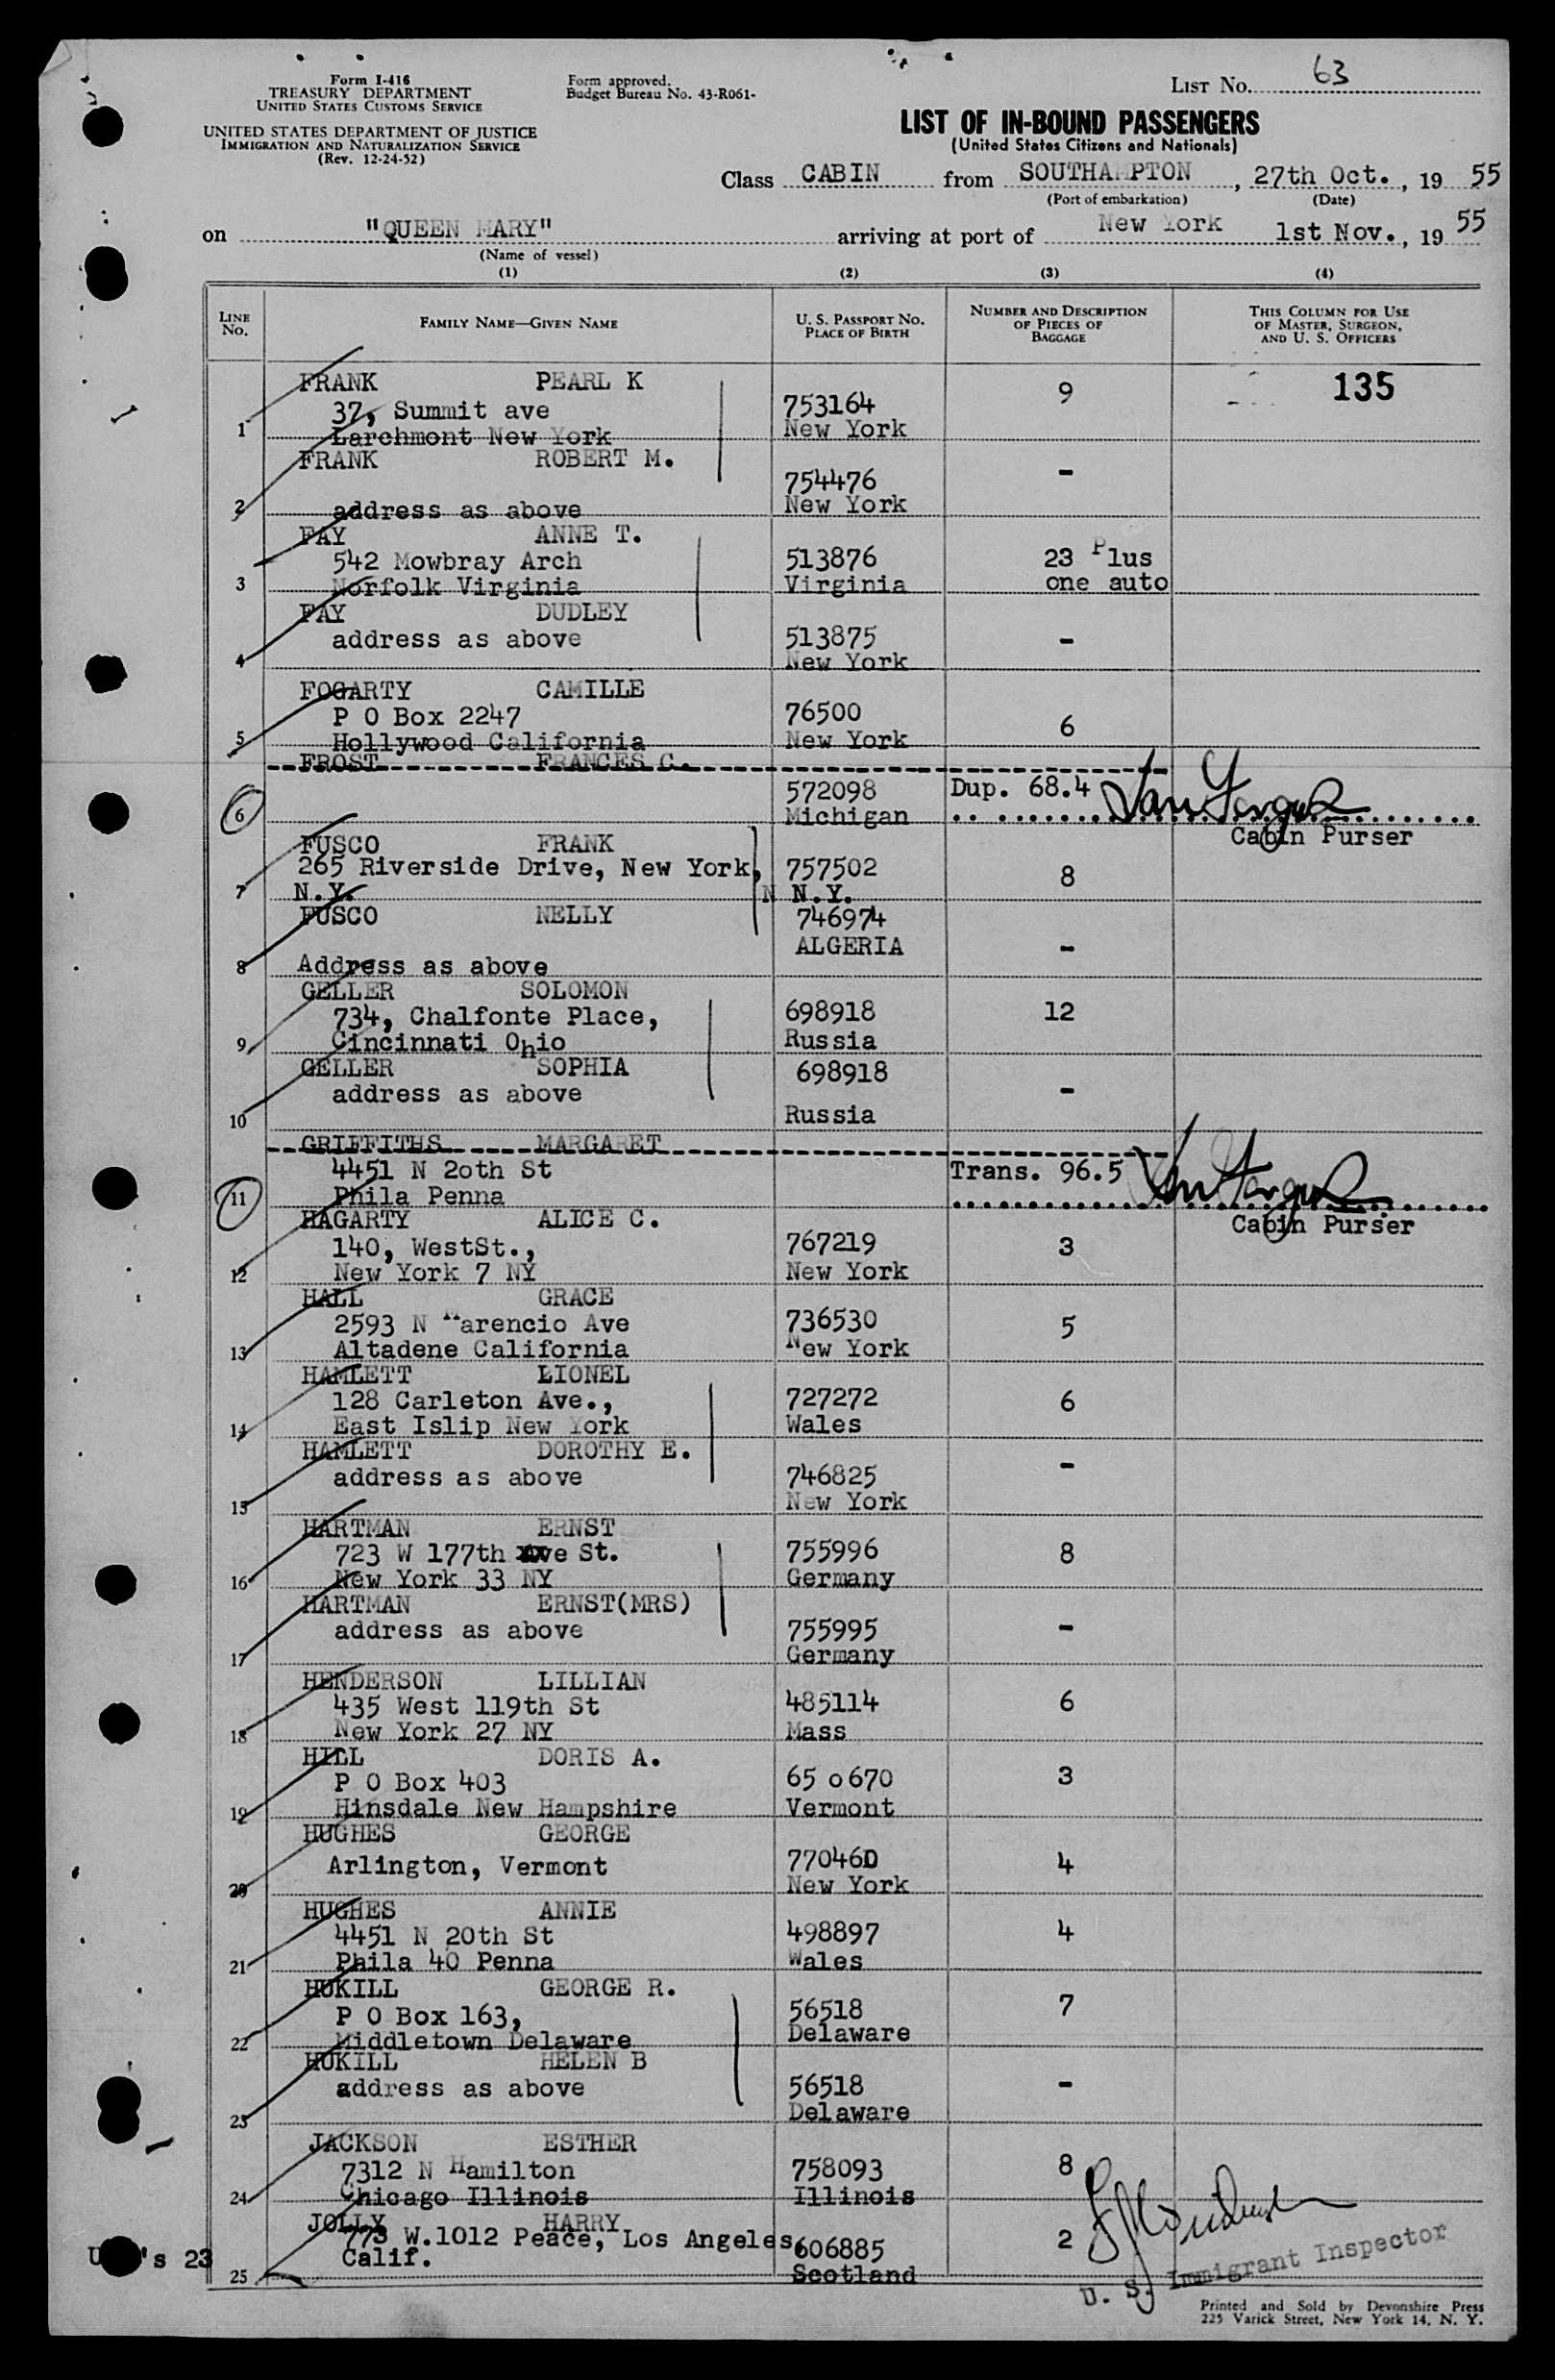 Form I-416
TREASURY DEPARTMENT
UNITED STATES CUSTOMS SERVICE
UNITED STATES DEPARTMENT OF JUSTICE
IMMIGRATION AND NATURALIZATION SERVICE
(Rev. 12-24-52)
Form approved.
Budget Bureau No. 43-R061-
LIST No. 63
LIST OF IN-BOUND PASSENGERS
(United States Citizens and Nationals)
Class CABIN from SOUTHAMPTON, 27th Oct., 19 55
(Port of embarkation) (Date)
on "QUEEN MARY" arriving at port of New York 1st Nov., 19 55
(Name of vessel)
(1) (2) (3) (4)
LINE No. FAMILY NAME—GIVEN NAME U. S. PASSPORT NO. PLACE OF BIRTH NUMBER AND DESCRIPTION OF PIECES OF BAGGAGE THIS COLUMN FOR USE OF MASTER, SURGEON, AND U. S. OFFICERS
FRANK PEARL K 9 135
37, Summit ave 753164
1 Larchmont New York New York
FRANK ROBERT M. -
754476
2 address as above New York
FAY ANNE T.
542 Mowbray Arch 513876 23 Plus
3 Norfolk Virginia Virginia one auto
FAY DUDLEY
address as above 513875 -
4 New York
FOGARTY CAMILLE
P O Box 2247 76500 6
5 Hollywood California New York
FROST FRANCES C.
572098 Dup. 68.4
6 Michigan
Cabin Purser
FUSCO FRANK
265 Riverside Drive, New York, 757502 8
7 N.Y. N N.Y.
FUSCO NELLY 746974
ALGERIA -
8 Address as above
GELLER SOLOMON
734, Chalfonte Place, 698918 12
9 Cincinnati Ohio Russia
GELLER SOPHIA 698918
address as above -
10 Russia
GRIFFITHS MARGARET
4451 N 2oth St Trans. 96.5
11 Phila Penna
Cabin Purser
HAGARTY ALICE C.
140, WestSt., 767219 3
12 New York 7 NY New York
HALL GRACE
2593 N Marencio Ave 736530 5
13 Altadene California New York
HAMLETT LIONEL
128 Carleton Ave., 727272 6
14 East Islip New York Wales
HAMLETT DOROTHY E.
address as above 746825 -
15 New York
HARTMAN ERNST
723 W 177th xxve St. 755996 8
16 New York 33 NY Germany
HARTMAN ERNST(MRS)
address as above 755995 -
17 Germany
HENDERSON LILLIAN
435 West 119th St 485114 6
18 New York 27 NY Mass
HILL DORIS A.
P O Box 403 65 o670 3
19 Hinsdale New Hampshire Vermont
HUGHES GEORGE
Arlington, Vermont 77046D 4
20 New York
HUGHES ANNIE
4451 N 20th St 498897 4
21 Phila 40 Penna Wales
HUKILL GEORGE R.
P O Box 163, 56518 7
22 Middletown Delaware Delaware
HUKILL HELEN B
address as above 56518 -
23 Delaware
JACKSON ESTHER
7312 N Hamilton 758093 8
24 Chicago Illinois Illinois
JOLLY HARRY
773 W.1012 Peace, Los Angeles, 606885 2
Calif.
25 Scotland
's 23
U. S. Immigrant Inspector
Printed and Sold by Devonshire Press
225 Varick Street, New York 14, N. Y.